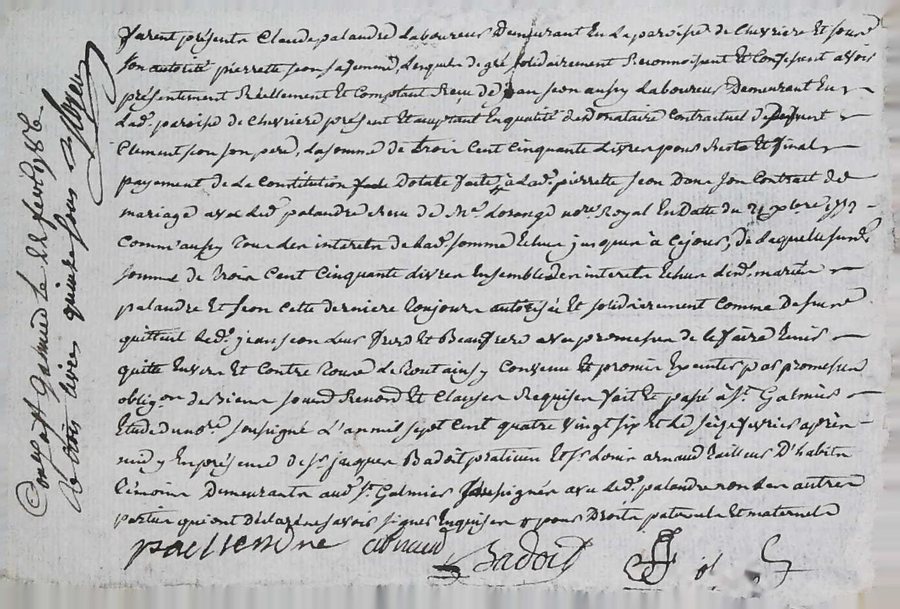 furent présents Claude palandre Laboureur Demeurant En La paroisse de chevriere Et sous
Son autorité pierrette jeon sa femme, Lesquels de gré solidairement Reconnoissent Et Confessent avoir
présentement Réellement Et Comptant Reçu de jean jeon aussy Laboureur Demeurant En
Lad. paroisse de Chevriere présent Et acceptant En qualité de donataire Contractuel de
Clement jeon son pere, La somme de trois Cent Cinquante Livres pour Reste Et final
payement de La Constitution Dotale faite à Lad. pierrette jeon Dans son Contrat de
mariage avec Led. palandre Reçu de Me. Lorange nore. Royal En Date du
Comme aussy tous Les interets de Lad. somme Echus jusques à Ce jour, de Laquelle susde.
somme de trois Cent Cinquante Livres Ensemble des interets Echus Lesd. mariés
palandre Et jeon Cette derniere toujours autorisée Et solidairement Comme Dessus
quittent Led. jean jeon Leur frere Et Beaufrere avec promesse de Le faire tenir
quitte Envers Et Contre tous Convenu Et promis Executer par promesse
oblig.on de Biens soumis Renond Et Clauses Requises fait Et passé à St. Galmier
Etude du nore. soussigné L'an mil sept Cent quatre vingt six Et Le seize fevrier après
midy En présence de sr. jacques Badoit praticien Et sr. Louis arnaud tailleur D'habits
témoins Demeurants aud. St. Galmier soussignés avec Led. palandre non Les autres
parties qui ont Déclaré ne savoir signer Enquises pour Droits paternels Et maternels
pallendre arnaud Badoit
Con.lé à St Galmier le 22 fevr 1786
Reçu trois livres quinze sous